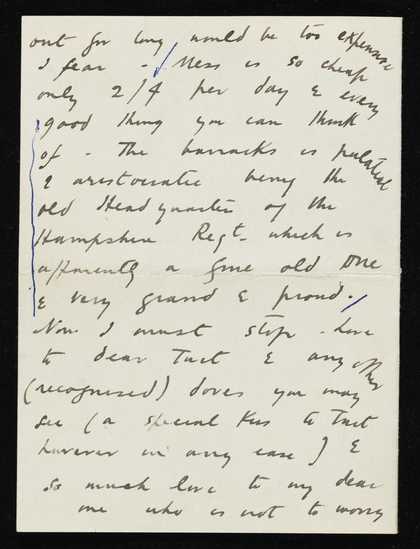 out for long would be too expensive
I fear - Mess is so cheap
only 2/4 per day & every
good thing you can think
of - The barracks is palatial
& aristocratic being the
old Headquarters of the
Hampshire Regt. which is
apparently a fine old one
& very grand & proud.
Now I must stop - love
to dear Tuct & any other
(recognised) doves you may
see (a special kiss to Tuct
however in any case) &
so much love to my dear
one who is not to worry